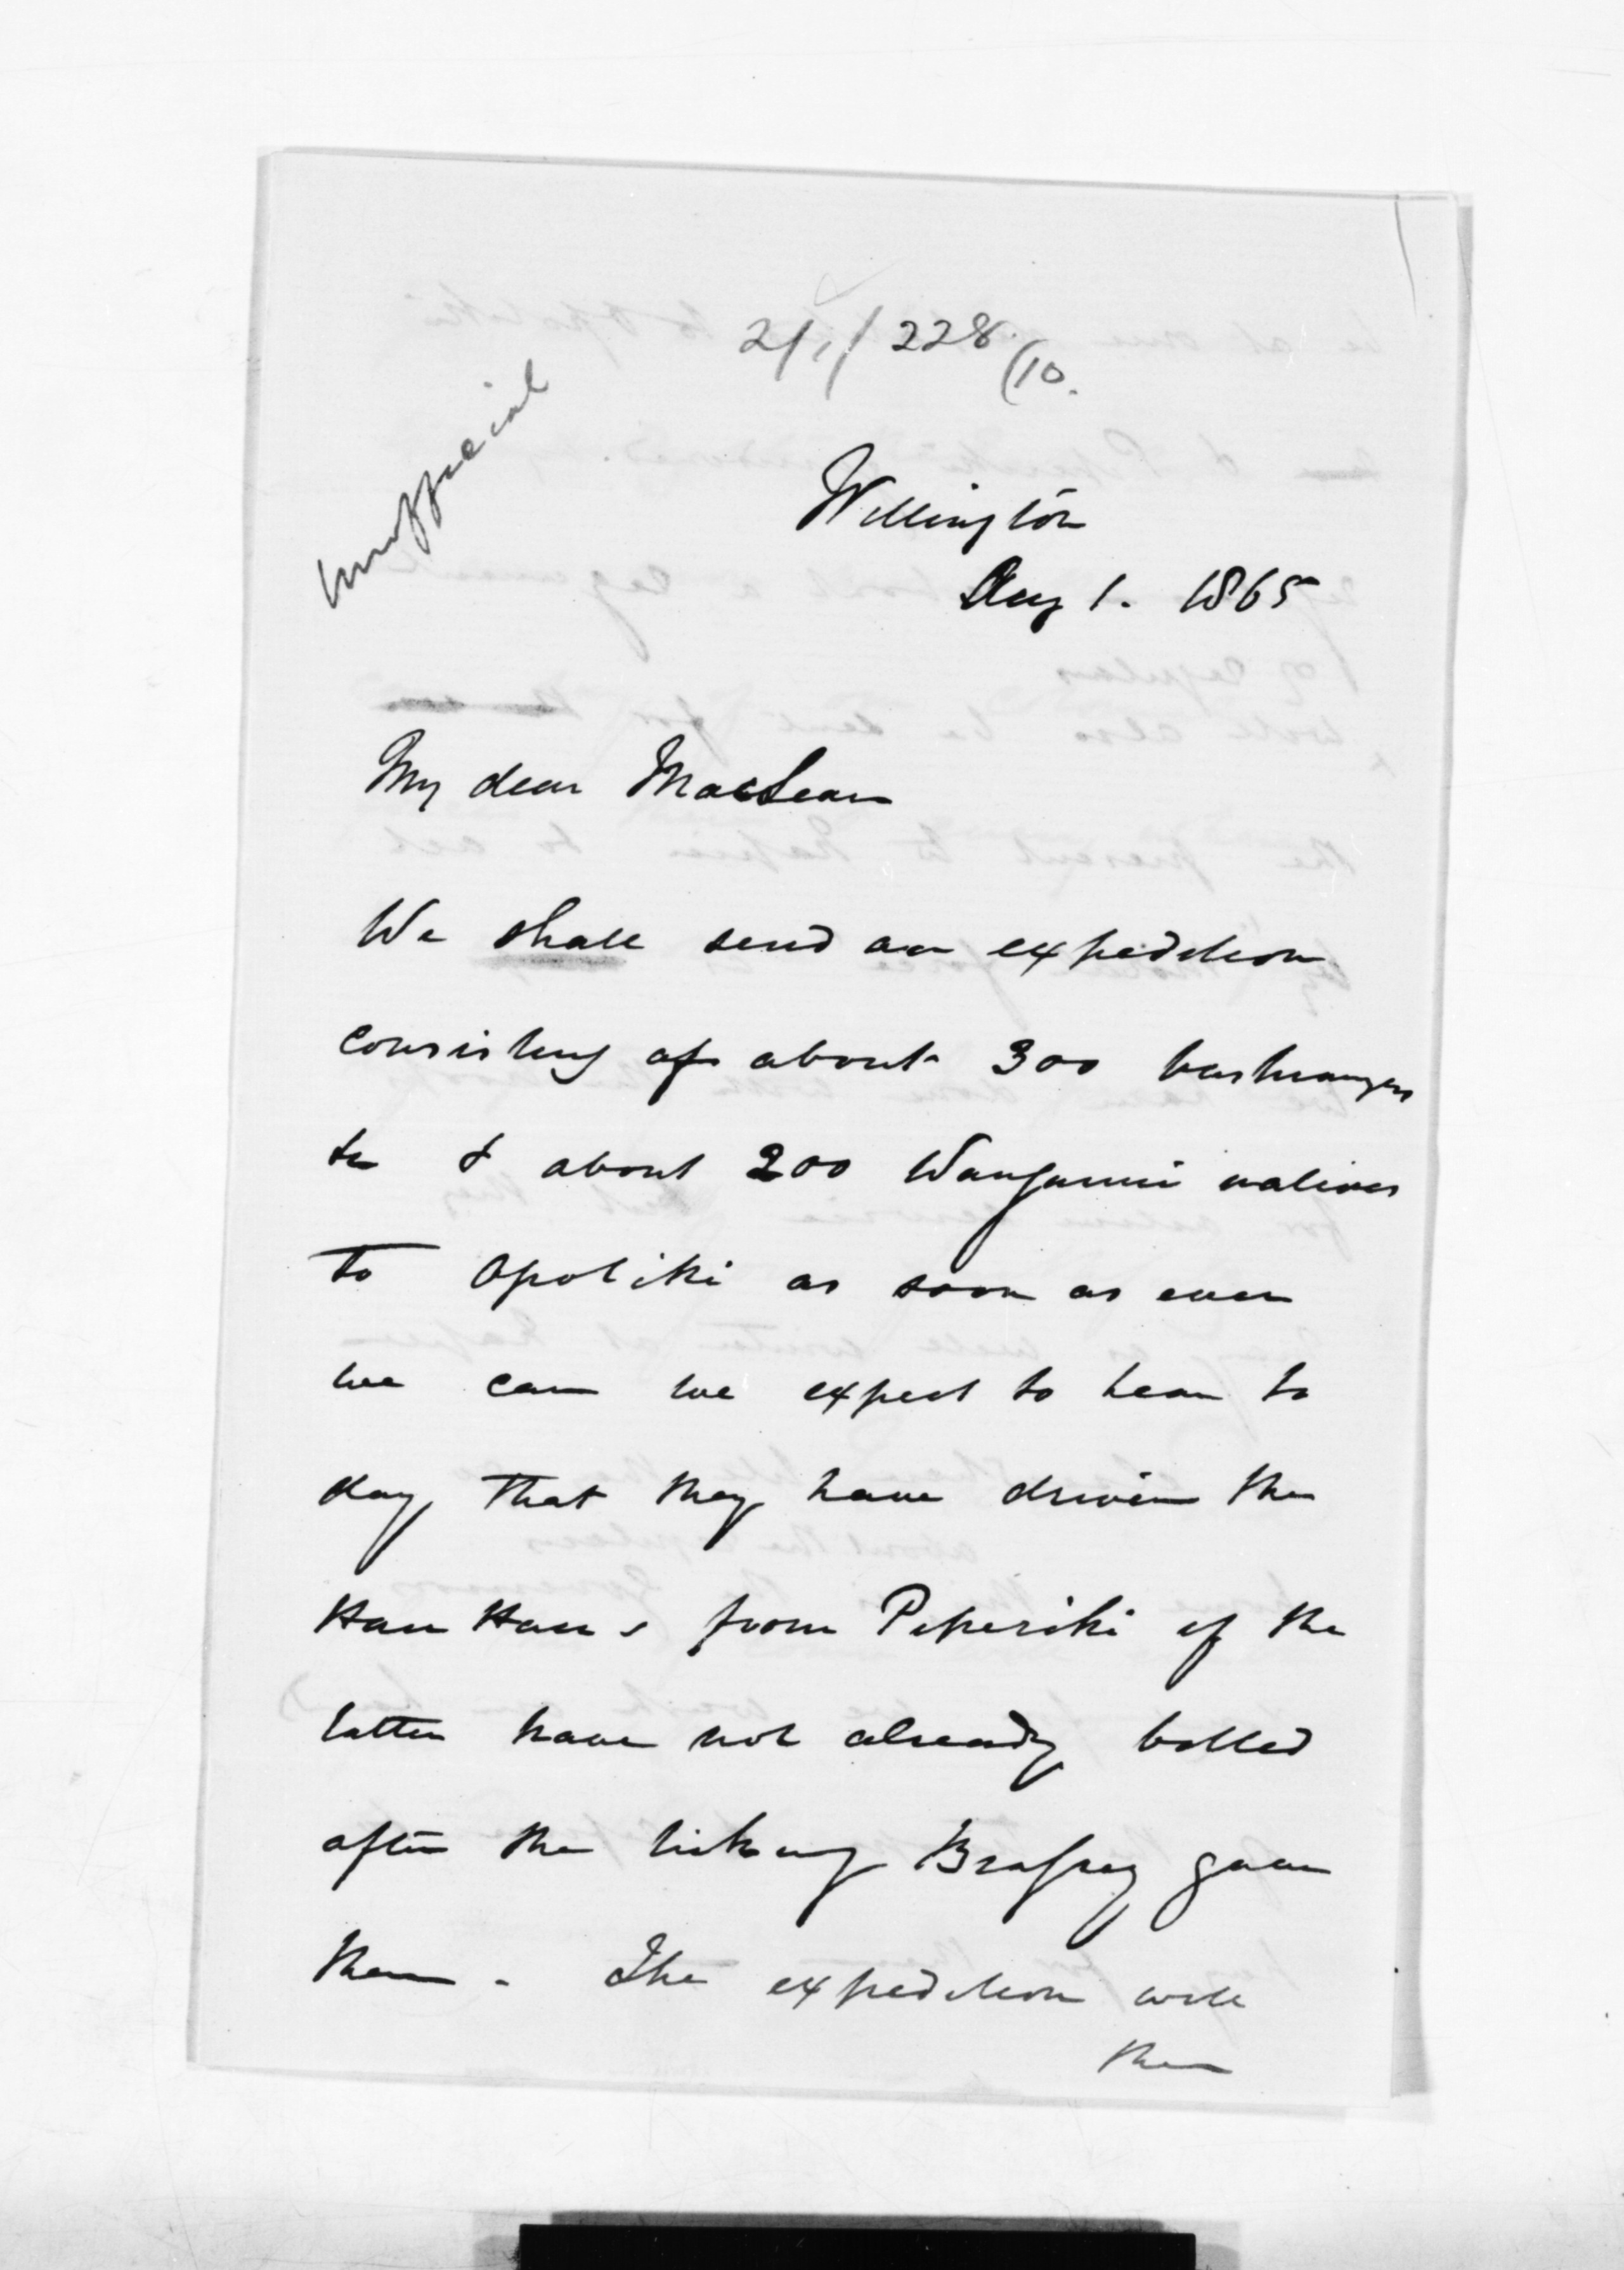 21/1/228
(10.
unofficial
Wellington
Aug 1. 1865
My dear MacLean
We shall send an expedition
consisting of about 300 bushrangers
to & about 200 Wanganui natives
to Opotiki as soon as ever
we can we expect to hear to
day that they have driven the
Hau Haus from Pipiriki if the
latter have not already bolted
after the licking Brassey gave
them - The expedition will
then